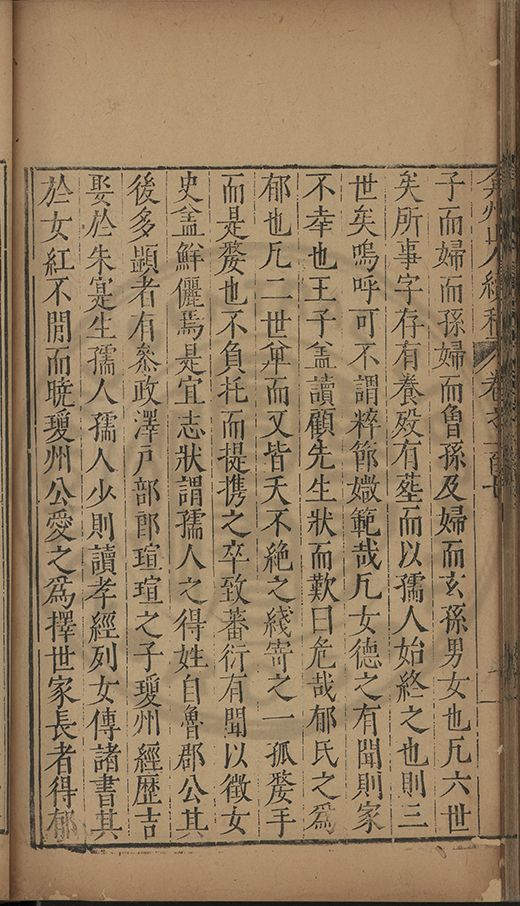 弇州山人續稿 卷之
子而婦而孫婦而魯孫及婦而玄孫男女也凡六世
矣所事字存有養歿有塟而以孺人始終之也則三
世矣嗚呼可不謂粹節媺範哉凡女德之有聞則家
不幸也王子盖讀顧先生狀而歎曰危哉郁氏之爲
郁也凡二世單而又皆夭不絶之綫寄之一孤嫠手
而是嫠也不負托而提携之卒致蕃衍有聞以徵女
史盖鮮儷焉是宜志狀謂孺人之得姓自魯郡公其
後多顯者有叅政澤戸部郎瑄瑄之子瓊州經歴吉
娶於朱寔生孺人孺人少則讀孝經列女傳諸書其
於女紅不閒而曉瓊州公愛之爲擇世家長者得郁